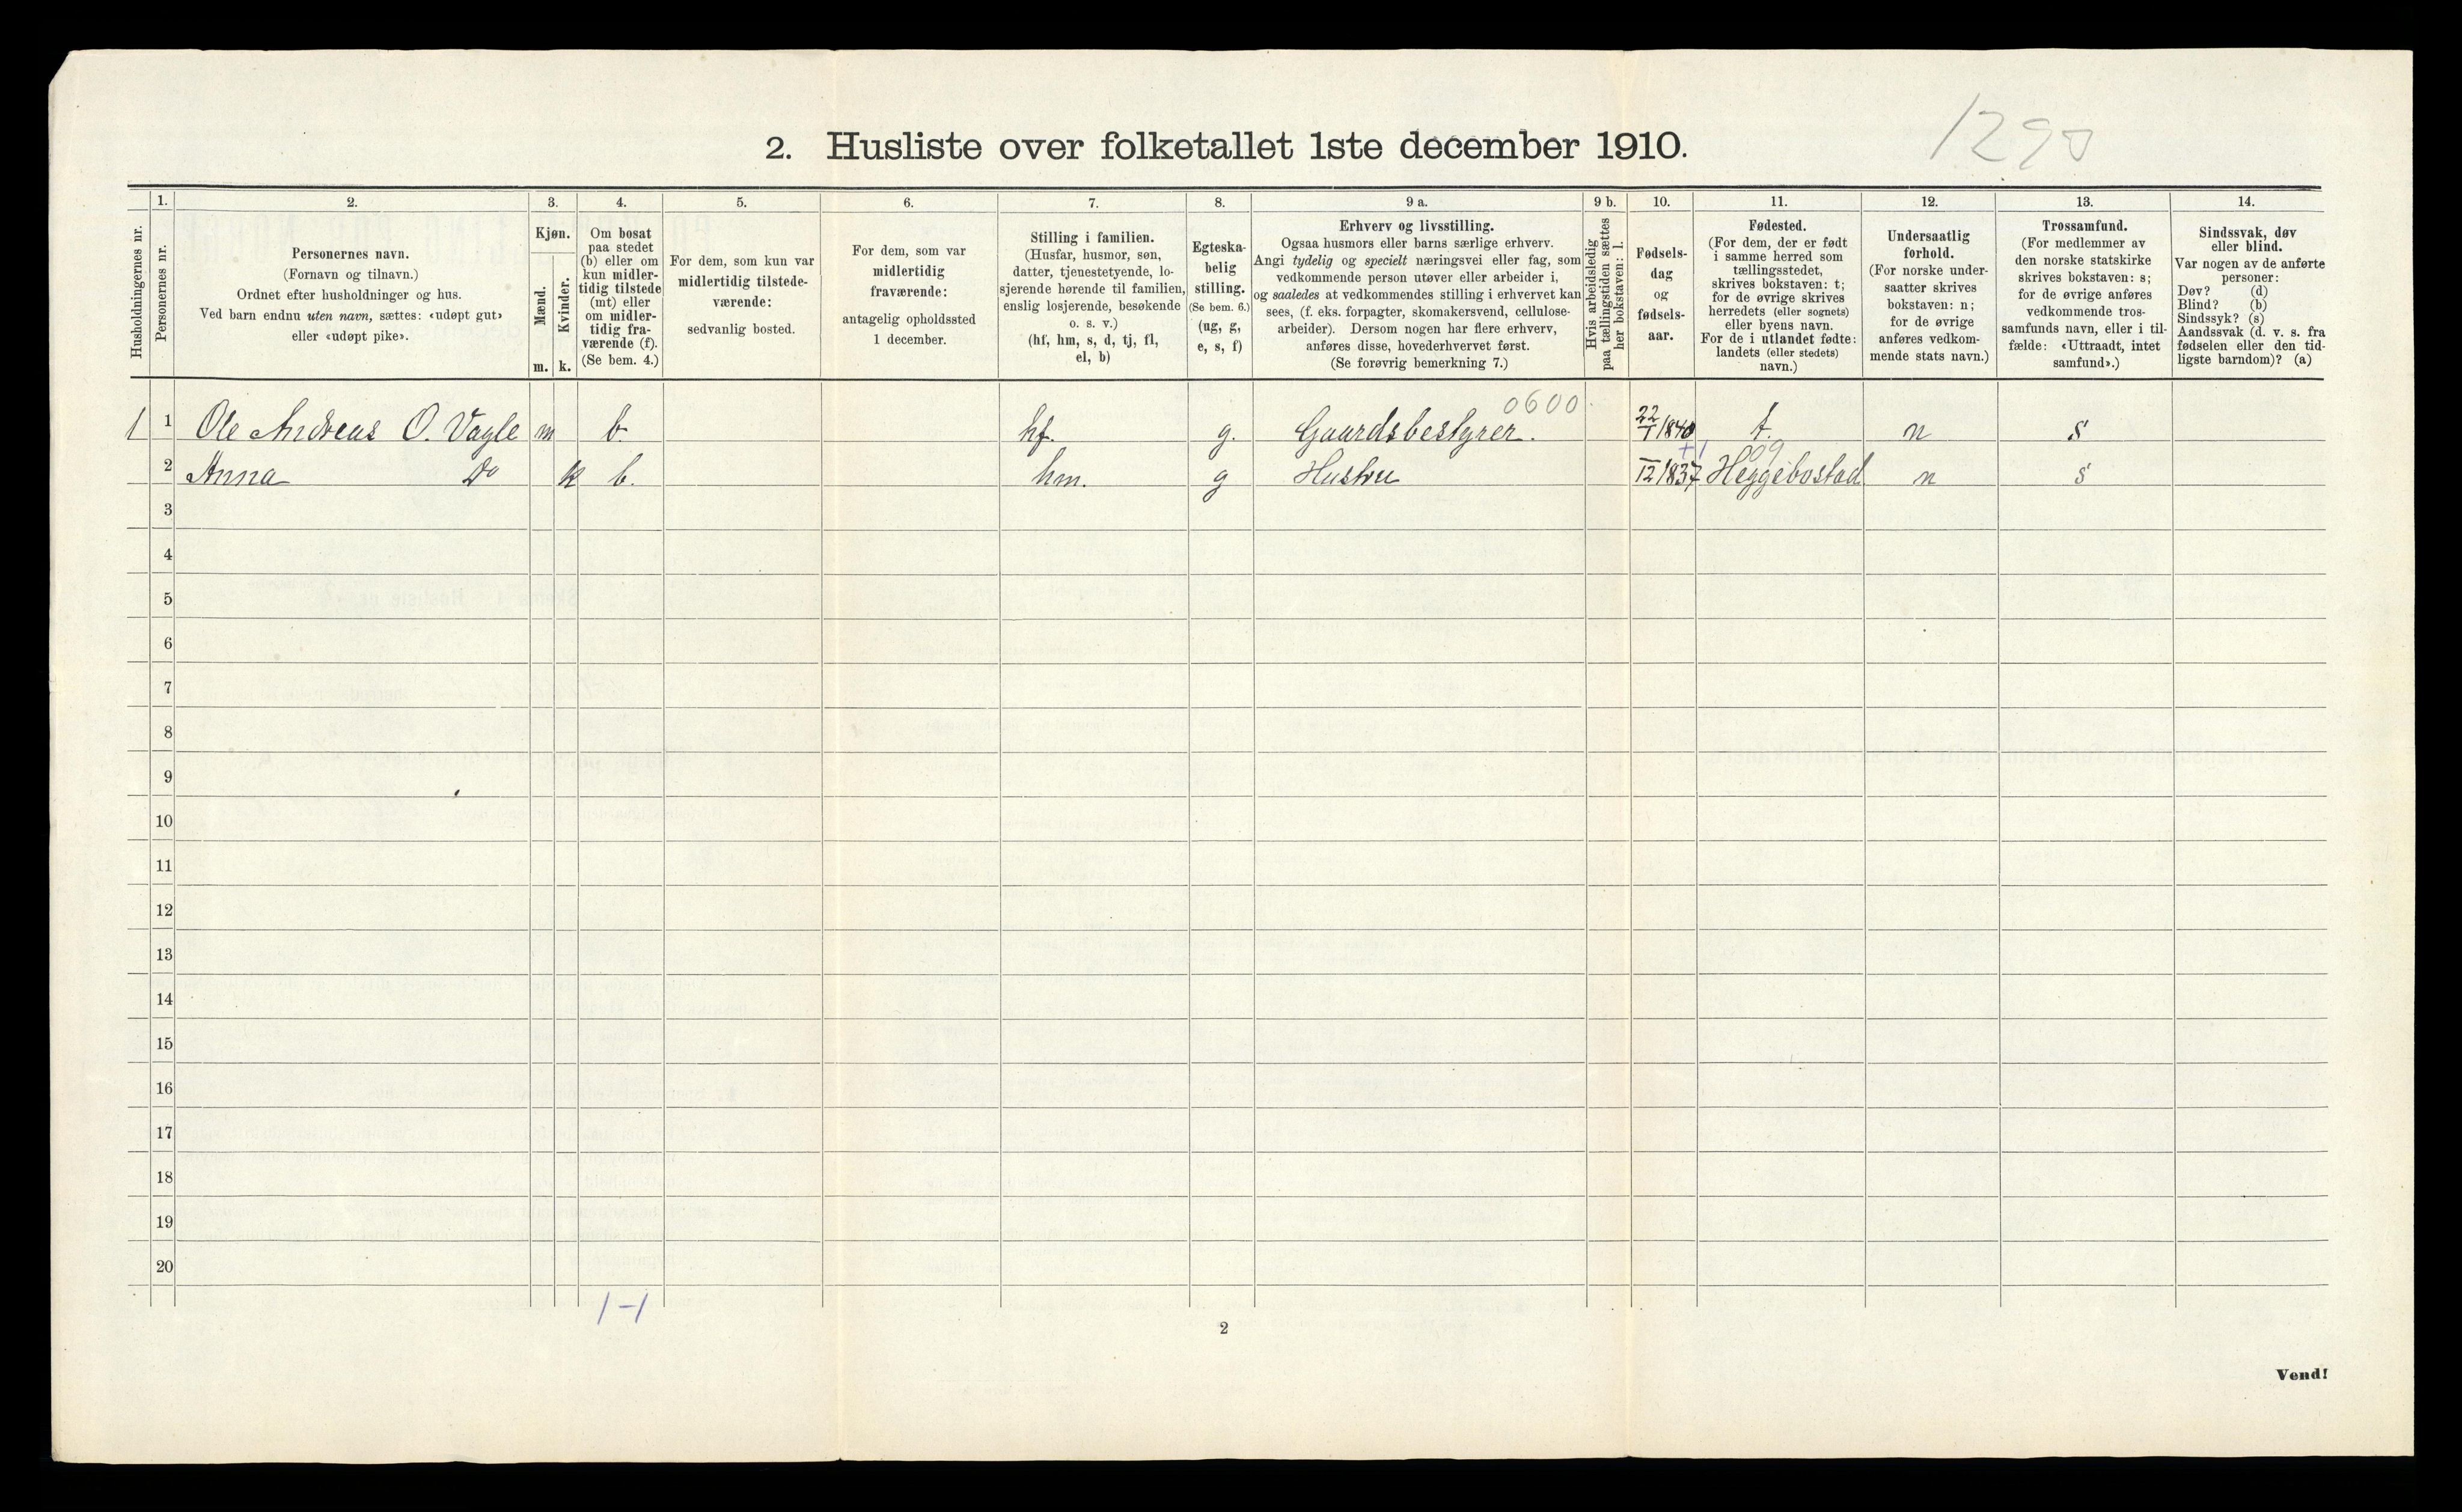 1290
2. Husliste over folketallet 1ste december 1910.
Husholdningernes nr.
1.
Personernes nr.
2.
Personernes navn.
(Fornavn og tilnavn.)
Ordnet efter husholdninger og hus.
Ved barn endnu uten navn, sættes: «udøpt gut»
eller «udøpt pike».
3.
Kjøn.
Mænd.
m.
Kvinder.
k.
4.
Om bosat
paa stedet
(b) eller om
kun midler-
tidig tilstede
(mt) eller
om midler-
tidig fra-
værende (f).
(Se bem. 4.)
5.
For dem, som kun var
midlertidig tilstede-
værende:
sedvanlig bosted.
6.
For dem, som var
midlertidig
fraværende:
antagelig opholdssted
1 december.
7.
Stilling i familien.
(Husfar, husmor, søn,
datter, tjenestetyende, lo-
sjerende hørende til familien,
enslig losjerende, besøkende
o. s. v.)
(hf, hm, s, d, tj, fl,
el, b)
8.
Egteska-
belig
stilling.
(Se bem. 6.)
(ug, g,
e, s, f)
9 a.
Erhverv og livsstilling.
Ogsaa husmors eller barns særlige erhverv.
Angi tydelig og specielt næringsvei eller fag, som
vedkommende person utøver eller arbeider i,
og saaledes at vedkommendes stilling i erhvervet kan
sees, (f. eks. forpagter, skomakersvend, cellulose-
arbeider). Dersom nogen har flere erhverv,
anføres disse, hovederhvervet først.
(Se forøvrig bemerkning 7.)
9 b.
Hvis arbeidsledig
paa tællingstiden sættes
her bokstaven: l.
10.
Fødsels-
dag
og
fødsels-
aar.
11.
Fødested.
(For dem, der er født
i samme herred som
tællingsstedet,
skrives bokstaven: t;
for de øvrige skrives
herredets (eller sognets)
eller byens navn.
For de i utlandet fødte:
landets (eller stedets)
navn.)
12.
Undersaatlig
forhold.
(For norske under-
saatter skrives
bokstaven: n;
for de øvrige
anføres vedkom-
mende stats navn.)
13.
Trossamfund.
(For medlemmer av
den norske statskirke
skrives bokstaven: s;
for de øvrige anføres
vedkommende tros-
samfunds navn, eller i til-
fælde: «Uttraadt, intet
samfund».)
14.
Sindssvak, døv
eller blind.
Var nogen av de anførte
personer:
Døv? (d)
Blind? (b)
Sindssyk? (s)
Aandssvak (d. v. s. fra
fødselen eller den tid-
ligste barndom)? (a)
0600
1 1 Ole Andreas O. Vagle m b. hf. g. Gaardsbestyrer. 22/1 1840 t. n s
+1 09
2 Anna Do k b. hm. g Hustru 1/12 1837 Heggebostad n s
3
4
5
6
7
8
9
10
11
12
13
14
15
16
17
18
19
20
1-1
2
Vend!